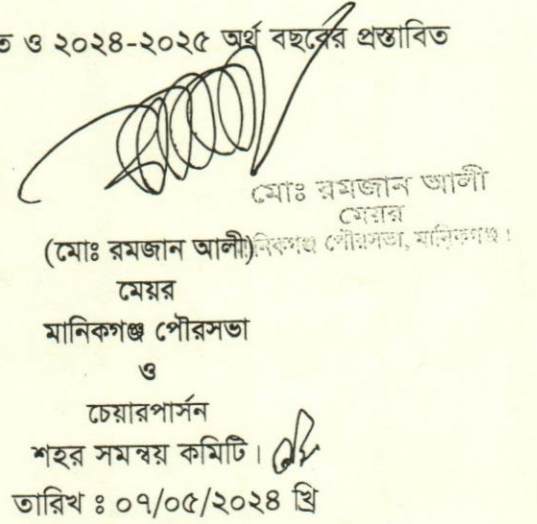 ত ও ২০২৪-২০২৫ অর্থ বছরের প্রস্তাবিত
মোঃ রমজান আলী
মেয়র
(মোঃ রমজান আলী)নিকগঞ্জ পৌরসভা, মানিকগঞ্জ।
মেয়র
মানিকগঞ্জ পৌরসভা
ও
চেয়ারপার্সন
শহর সমন্বয় কমিটি।
তারিখ ঃ ০৭/০৫/২০২৪ খ্রি